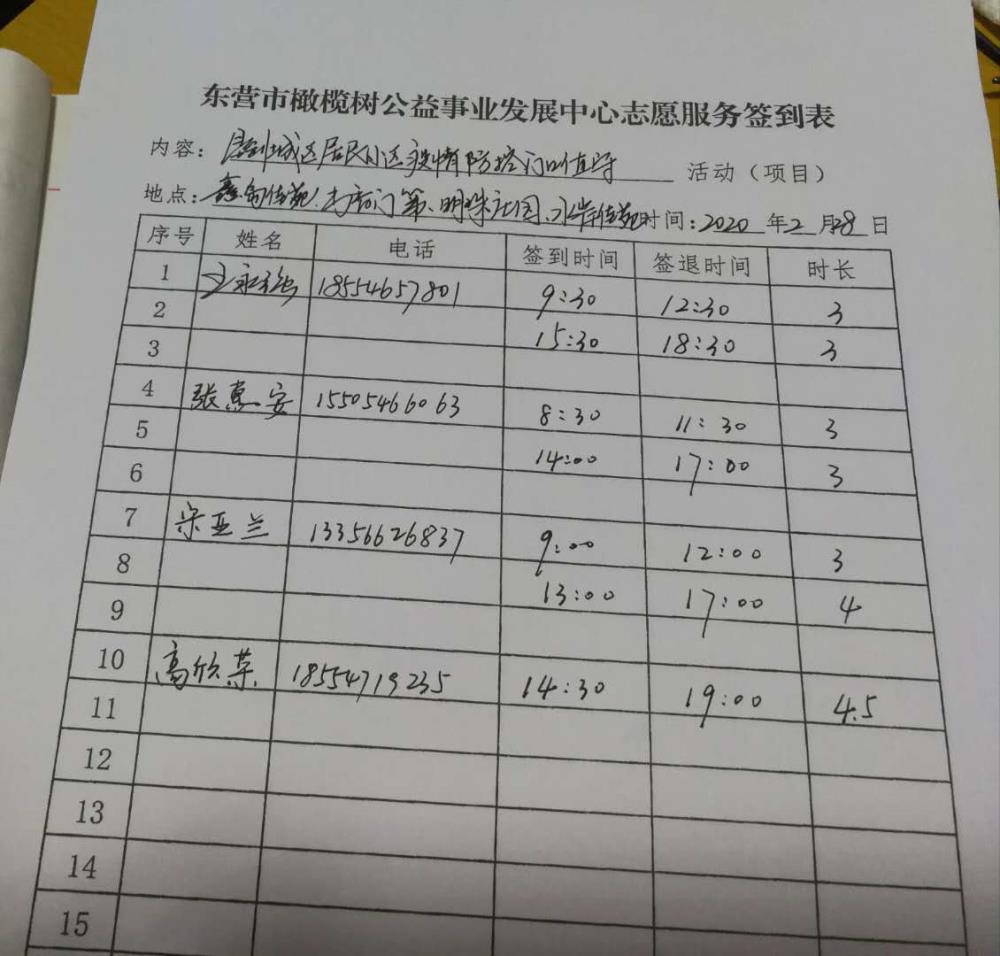 东营市橄榄树公益事业发展中心志愿服务签到表
内容：城区居民小区疫情防控门口值守 活动（项目）
地点：鑫 佳苑、 明珠社园、水岸佳苑 时间：2020 年 2 月 28 日
序号 姓名 电话 签到时间 签退时间 时长
1 王永 18554657801 9:30 12:30 3
2 15:30 18:30 3
3
4 张惠安 15505466063 8:30 11:30 3
5 14:00 17:00 3
6
7 宋亚兰 13356626837 9:00 12:00 3
8 13:00 17:00 4
9
10 高欣荣 18554719235 14:30 19:00 4.5
11
12
13
14
15